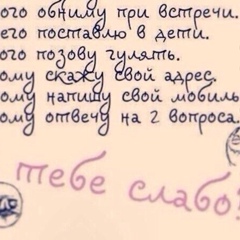 ого обниму при встречи.
его поставлю в дети.
ого позову гулять.
ому скажу свой адрес.
ому напишу свой мобиль
ому отвечу на 2 вопроса.
тебе слабо?